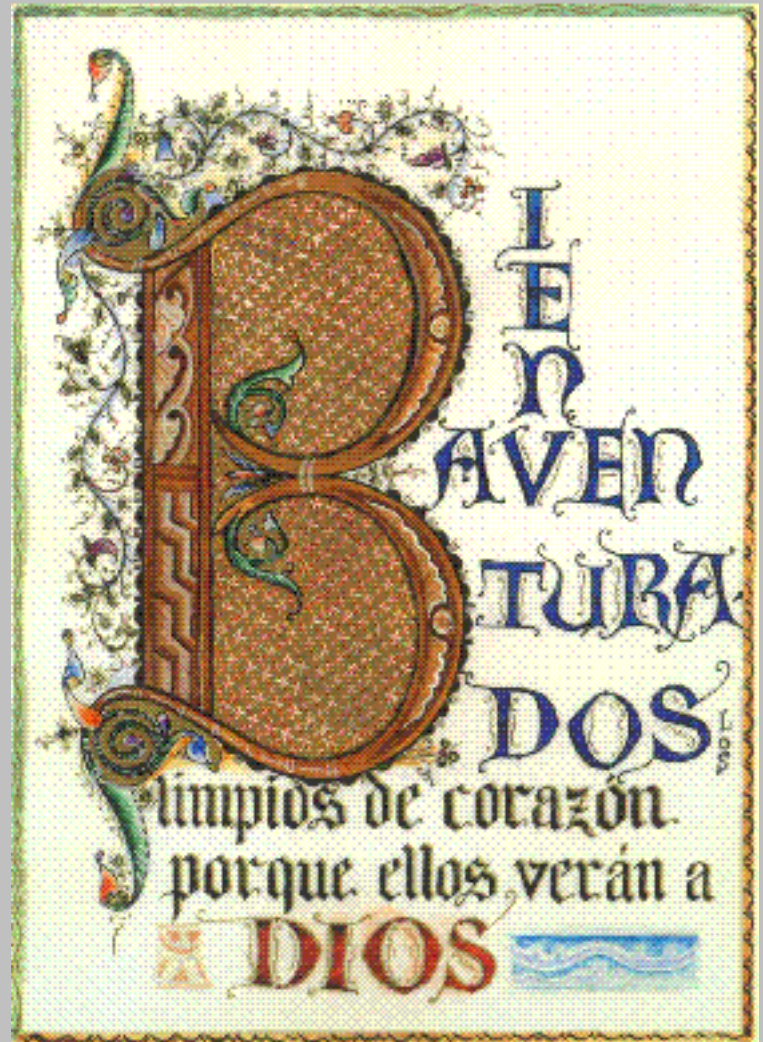 B
I
E
N
AVEN
TURA
DOS LOS
limpios de corazón
porque ellos verán a
DIOS